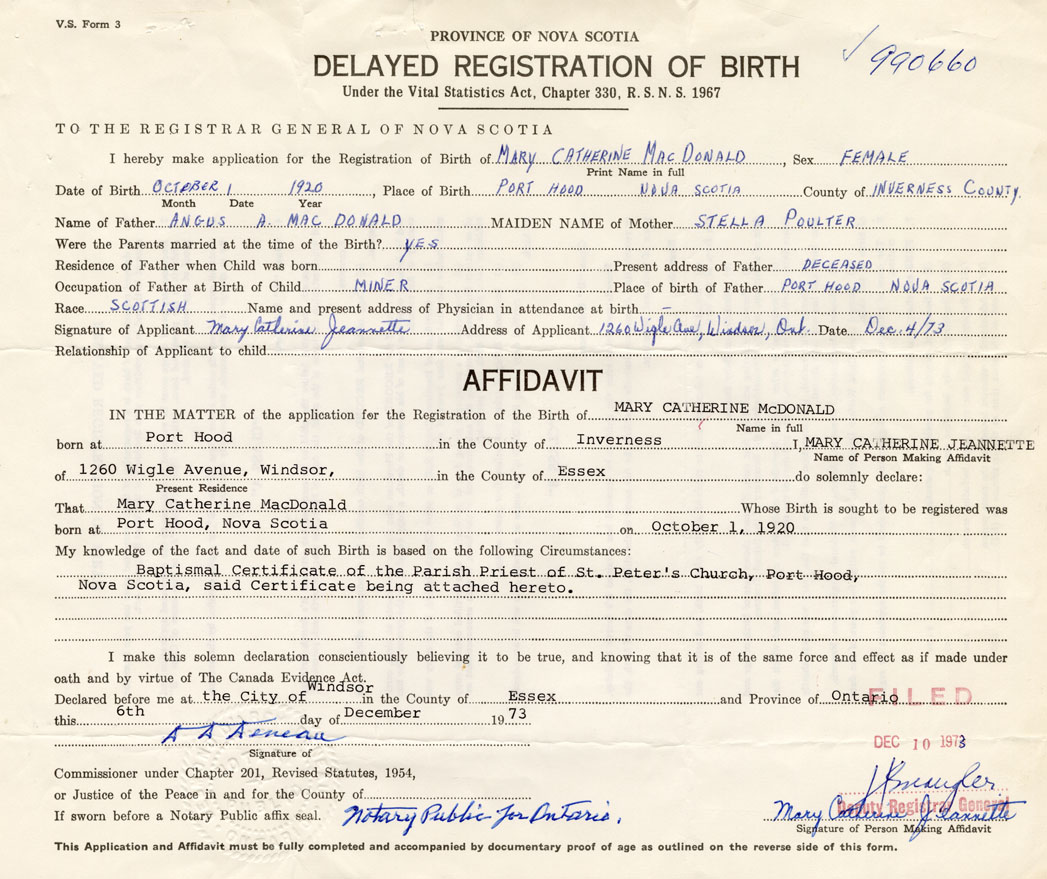 V.S. Form 3
PROVINCE OF NOVA SCOTIA
990660
DELAYED REGISTRATION OF BIRTH
Under the Vital Statistics Act, Chapter 330, R.S.N.S. 1967
TO THE REGISTRAR GENERAL OF NOVA SCOTIA
I hereby make application for the Registration of Birth of MARY CATHERINE MAC DONALD, Sex FEMALE
Print Name in full
Date of Birth OCTOBER 1 1920, Place of Birth PORT HOOD NOVA SCOTIA County of INVERNESS COUNTY.
Month Date Year
Name of Father ANGUS A. MAC DONALD MAIDEN NAME of Mother STELLA POULTER
Were the Parents married at the time of the Birth? YES
Residence of Father when Child was born Present address of Father DECEASED
Occupation of Father at Birth of Child MINER Place of birth of Father PORT HOOD NOVA SCOTIA
Race SCOTTISH Name and present address of Physician in attendance at birth —
Signature of Applicant Mary Catherine Jeannette Address of Applicant 1260 Wigle Ave, Windsor, Ont. Date Dec. 4/73
Relationship of Applicant to child
AFFIDAVIT
IN THE MATTER of the application for the Registration of the Birth of MARY CATHERINE McDONALD
Name in full
born at Port Hood in the County of Inverness I, MARY CATHERINE JEANNETTE
Name of Person Making Affidavit
of 1260 Wigle Avenue, Windsor, in the County of Essex do solemnly declare:
Present Residence
That Mary Catherine MacDonald Whose Birth is sought to be registered was
born at Port Hood, Nova Scotia on October 1, 1920
My knowledge of the fact and date of such Birth is based on the following Circumstances:
Baptismal Certificate of the Parish Priest of St. Peter's Church, Port Hood,
Nova Scotia, said Certificate being attached hereto.
I make this solemn declaration conscientiously believing it to be true, and knowing that it is of the same force and effect as if made under
oath and by virtue of The Canada Evidence Act.
Declared before me at the City of Windsor in the County of Essex and Province of Ontario
FILED
this 6th day of December 1973
DEC 10 1973
Signature of
Commissioner under Chapter 201, Revised Statutes, 1954,
or Justice of the Peace in and for the County of
Deputy Registrar General
If sworn before a Notary Public affix seal. Notary Public for Ontario. Mary Catherine Jeannette
Signature of Person Making Affidavit
This Application and Affidavit must be fully completed and accompanied by documentary proof of age as outlined on the reverse side of this form.